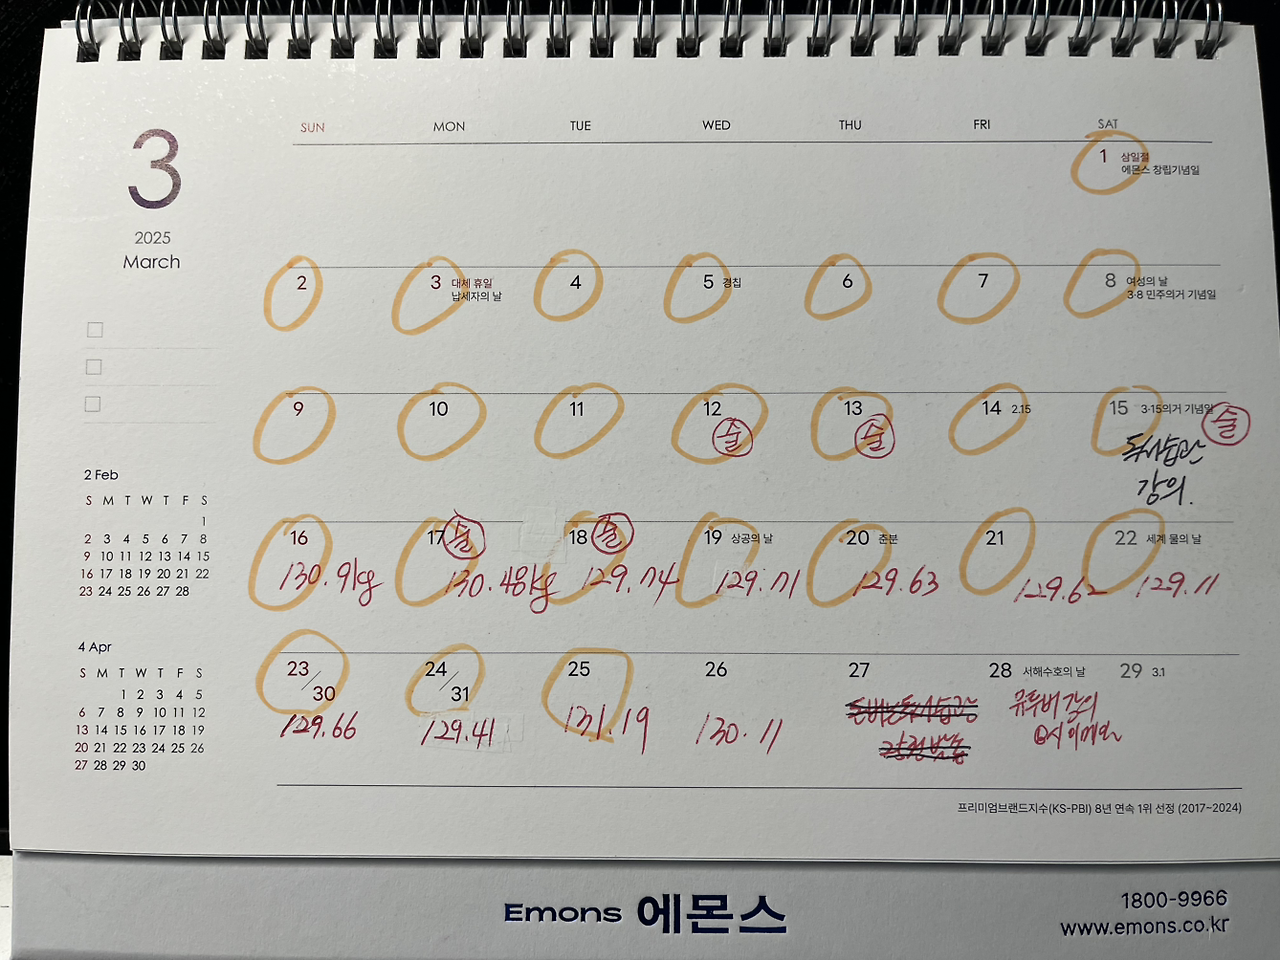 3
2025
March
SUN MON TUE WED THU FRI SAT
1 삼일절
에몬스 창립기념일
2 3 대체 휴일 4 5 경칩 6 7 8 여성의 날
납세자의 날 3·8 민주의거 기념일
9 10 11 12 13 14 2.15 15 3·15의거 기념일
술 술 술
독서습관
강의.
16 17 술 18 술 19 상공의 날 20 춘분 21 22 세계 물의 날
130.9kg 130.48kg 129.74 129.71 129.63 129.62 129.11
23/30 24/31 25 26 27 28 서해수호의 날 29 3.1
129.66 129.41 131.19 130.11
유투버 강의
2 Feb
S M T W T F S
1
2 3 4 5 6 7 8
9 10 11 12 13 14 15
16 17 18 19 20 21 22
23 24 25 26 27 28
4 Apr
S M T W T F S
1 2 3 4 5
6 7 8 9 10 11 12
13 14 15 16 17 18 19
20 21 22 23 24 25 26
27 28 29 30
프리미엄브랜드지수(KS-PBI) 8년 연속 1위 선정 (2017~2024)
Emons 에몬스
1800-9966
www.emons.co.kr